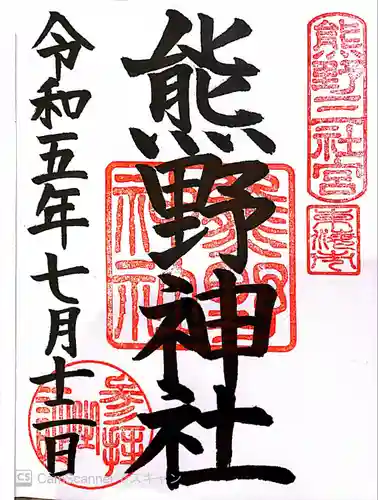 熊野三社宮
熊野神社
熊野神社
令和五年七月十二日
参拝
CS CamScanner でスキャン